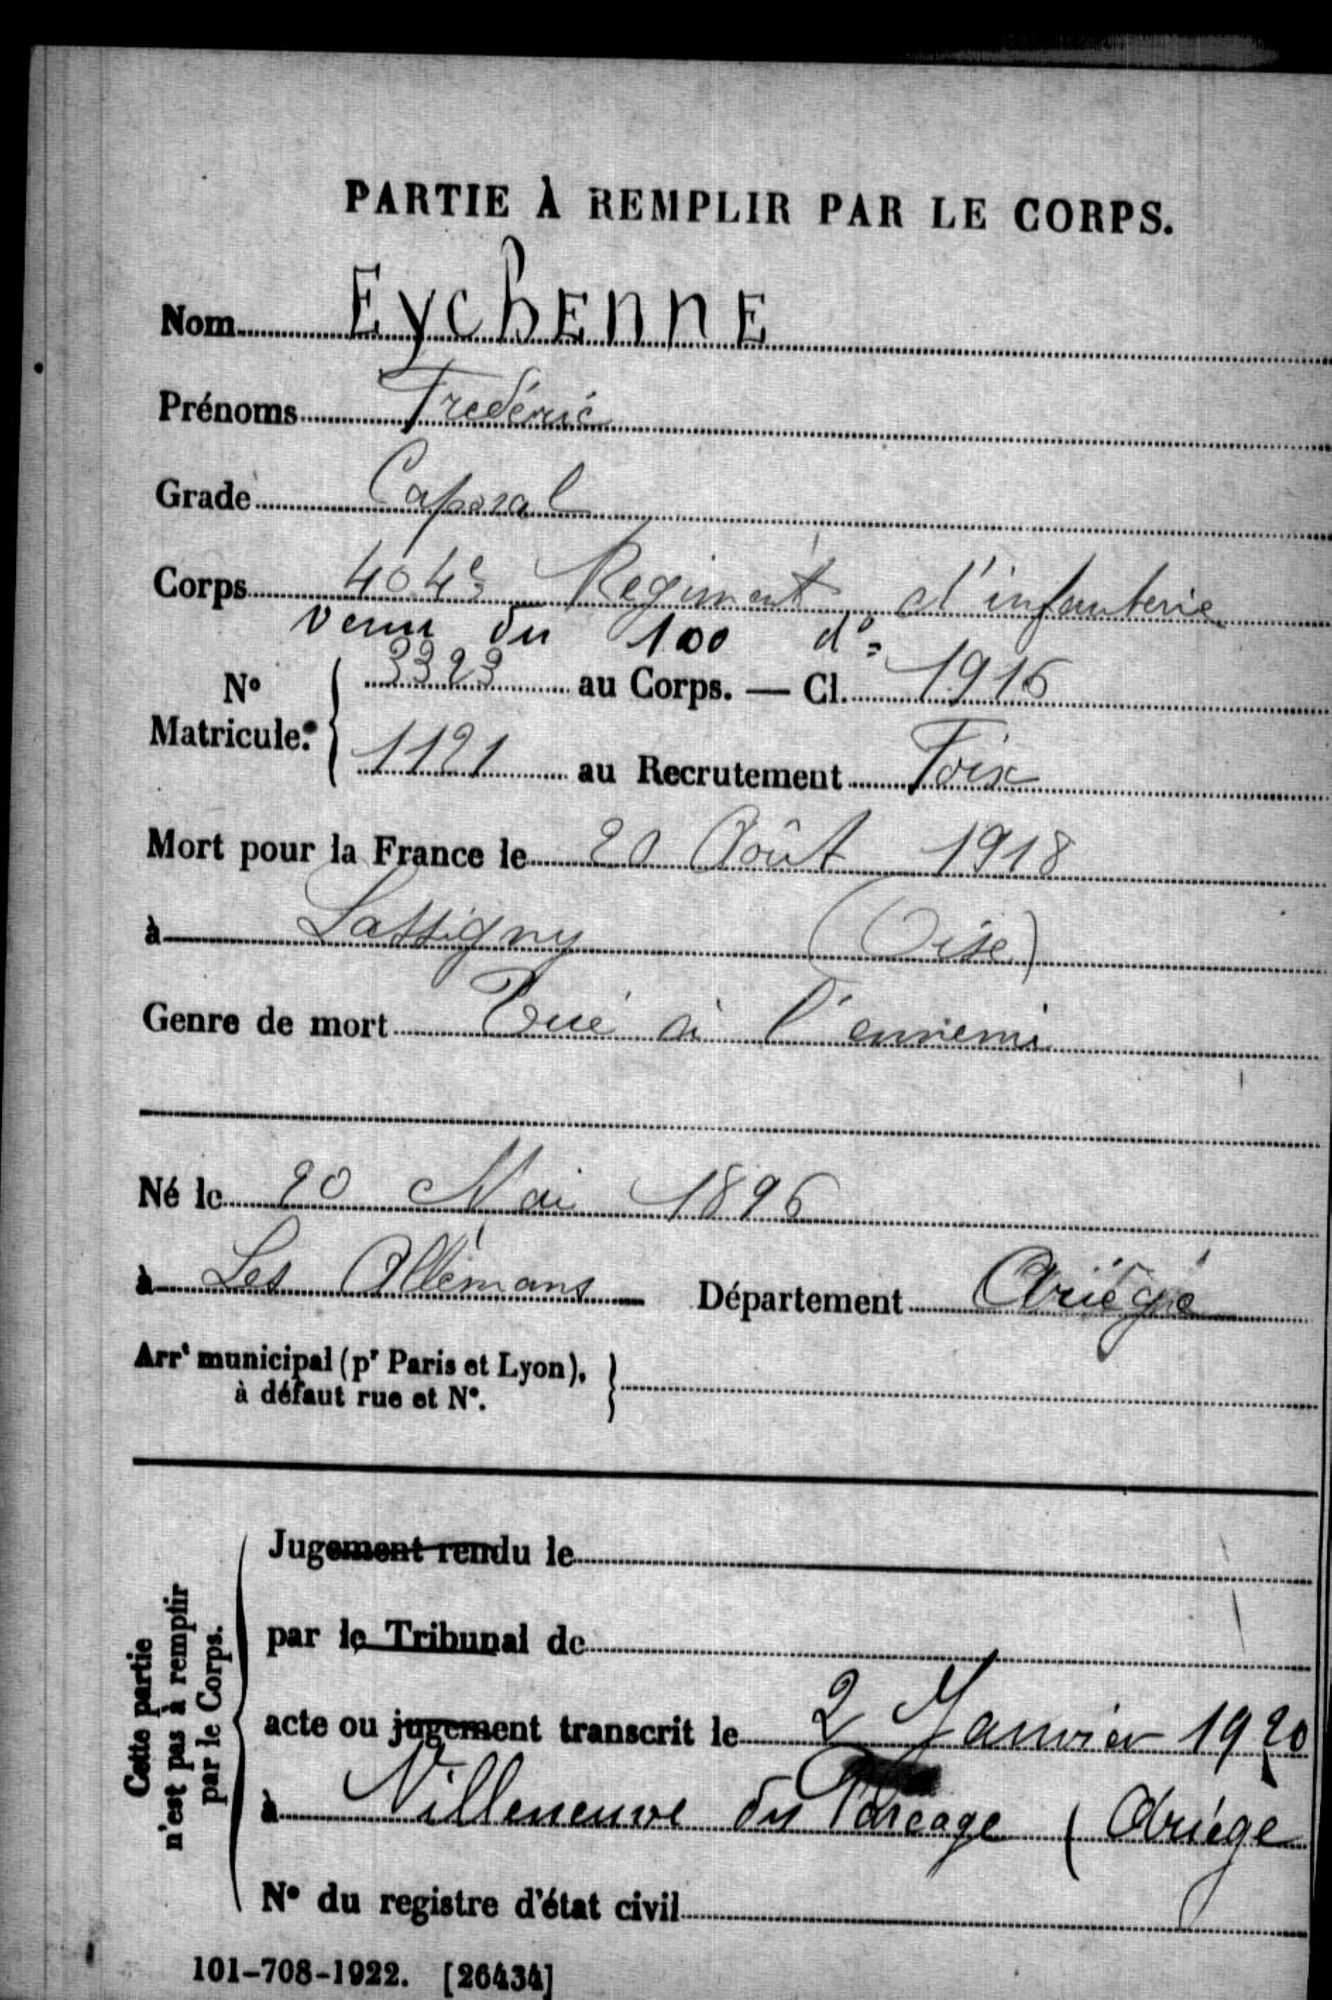 PARTIE À REMPLIR PAR LE CORPS.
Nom Eychenne
Prénoms Frédéric
Grade Caporal
Corps 404e Régiment d'infanterie
venu du 100 do
No Matricule. 3323 au Corps. — Cl. 1916
1121 au Recrutement Foix
Mort pour la France le 20 Août 1918
à Lassigny (Oise)
Genre de mort Tué à l'ennemi
Né le 20 Mai 1896
à Les Allemans Département Ariège
Arrt municipal (pr Paris et Lyon),
à défaut rue et No.
Cette partie
n'est pas à remplir
par le Corps.
Jugement rendu le
par le Tribunal de
acte ou jugement transcrit le 2 Janvier 1920
à Villeneuve du Paréage (Ariège
No du registre d'état civil
101-708-1922. [26434]